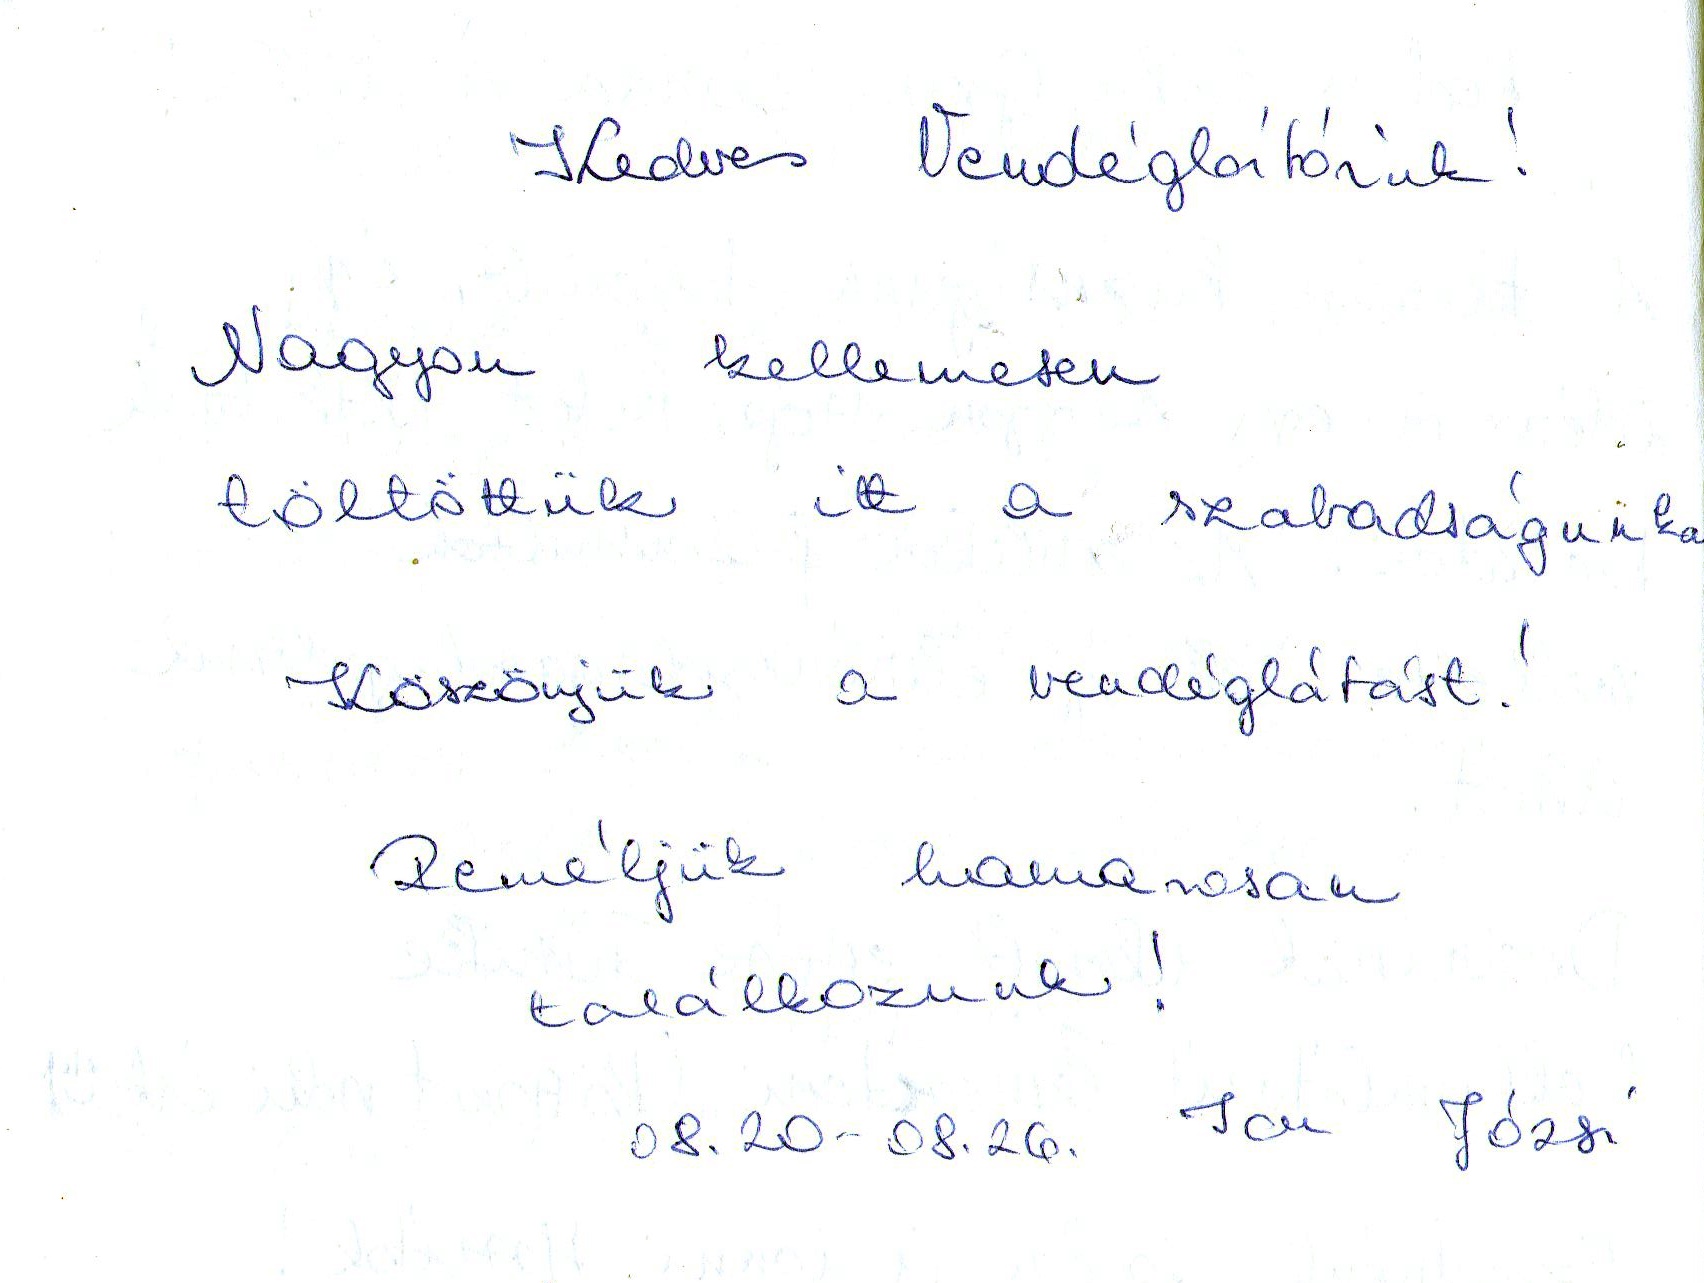 Kedves Vendéglátóink!
Nagyon kellemesen
töltöttük itt a szabadságunka
Köszönjük a vendéglátást!
Reméljük hamarosan
találkozunk!
08.20-08.26. Józsi